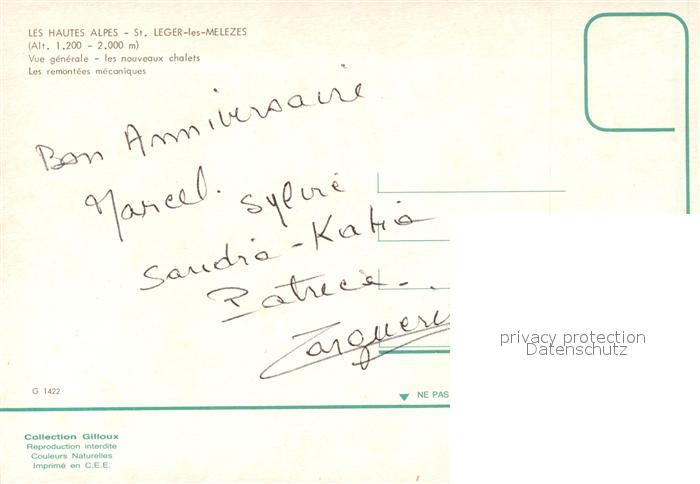 LES HAUTES ALPES - St. LEGER-les-MELEZES
(Alt. 1.200 - 2.000 m)
Vue générale - les nouveaux chalets
Les remontées mécaniques
Bon Anniversaire
Marcel. Sylvie
Sandra - Katia
Patricia.
privacy protection
Datenschutz
G 1422
NE PAS
Collection Gilloux
Reproduction interdite
Couleurs Naturelles
Imprimé en C.E.E.